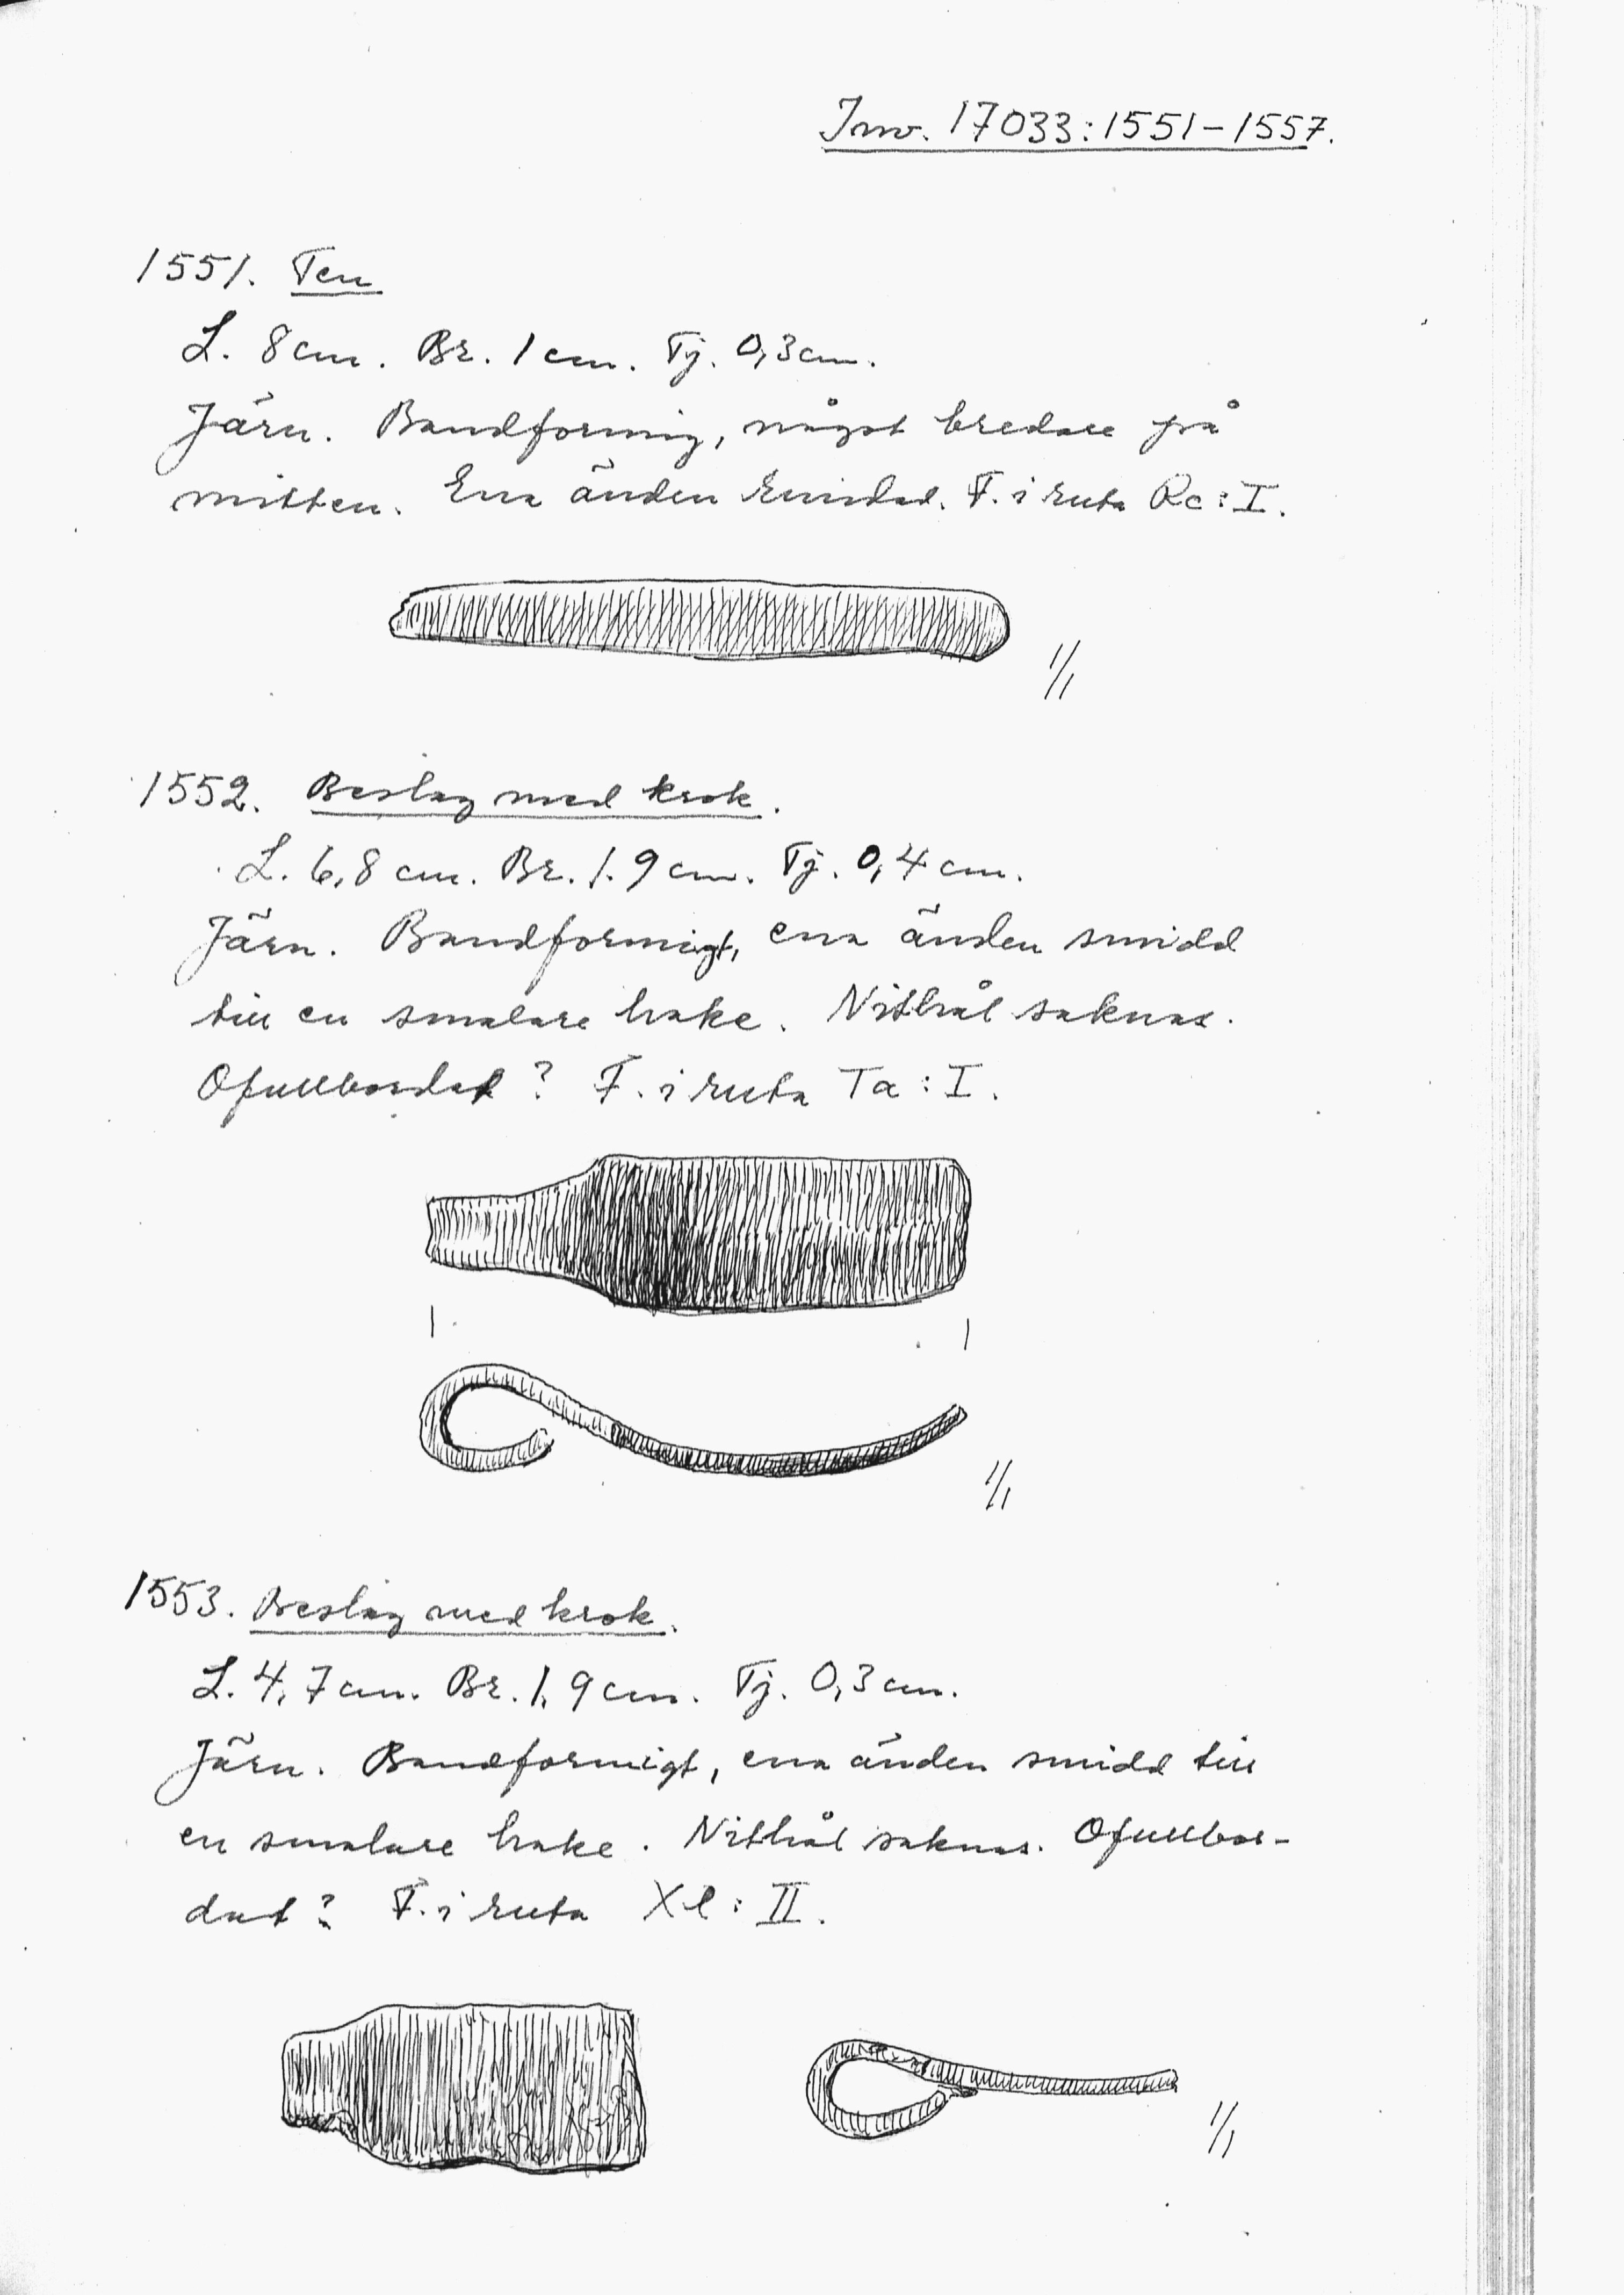 Inv. 17033:1551-1557.
1551. Ten
L. 8 cm. Br. 1 cm. Tj. 0,3 cm.
Järn. Bandformig, något bredare på
mitten. Ena änden rundad. F. i ruta Rc: I.
1/1
1552. Beslag med krok.
L. 6,8 cm. Br. 1.9 cm. Tj. 0,4 cm.
Järn. Bandformigt, ena änden smidd
till en smalare hake. Nithål saknas.
Ofullbordat? F. i ruta Ta: I.
1/1
1553. Beslag med krok.
L. 4,7 cm. Br. 1,9 cm. Tj. 0,3 cm.
Järn. Bandformigt, ena änden smidd till
en smalare hake. Nithål saknas. Ofullbor-
dat? F. i ruta Xl: II.
1/1